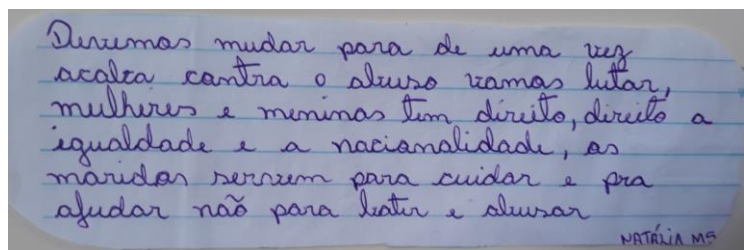 Devemos mudar para de uma vez
acalca contra o abuso vamos lutar,
mulheres e meninas tem direito, direito a
igualdade e a nacionalidade, os
maridos servem para cuidar e pra
ajudar não para bater e abusar
NATÁLIA MS